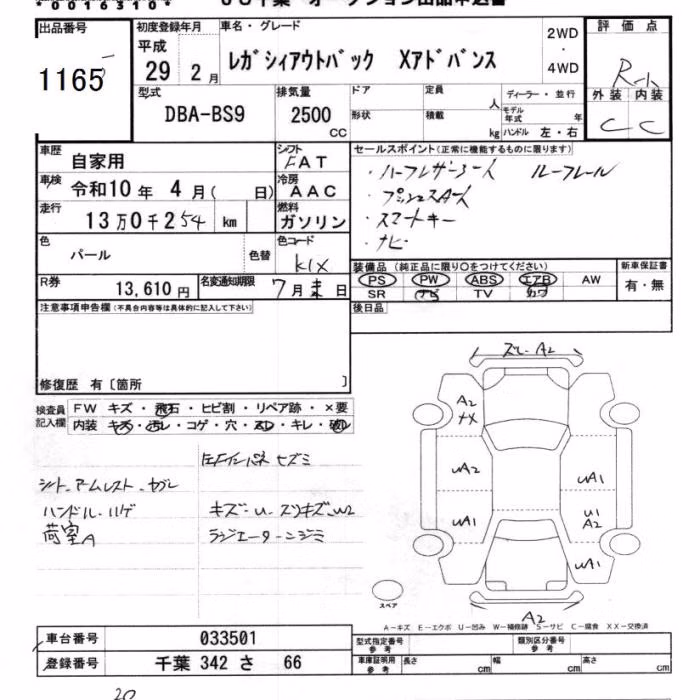 *0016310*
出品番号
1165
初度登録年月
平成
29年 2月
車名・グレード
レガシィアウトバック Xアドバンス
2WD
・
4WD
評価点
R
外装 内装
C C
型式
DBA-BS9
排気量
2500
CC
ドア
形状
定員
人
積載
kg
ディーラー・並行
モデル年式 年
ハンドル 左・右
車歴
自家用
シフト
FAT
車検
令和10年 4月( 日)
冷房
AAC
走行
13万0千254 km
燃料
ガソリン
色
パール
色替
色コード
K1X
R券
13,610円
名変通知期限
7月末日
セールスポイント(正常に機能するものに限ります)
・ハーフレザーシート ルーフレール
・プッシュスタート
・スマートキー
・ナビ
装備品(純正品に限り○をつけてください)
新車保証書
PS PW ABS エアB AW
SR ナビ TV カワ
有・無
後日品
注意事項申告欄(不具合内容等は具体的に記入して下さい)
修復歴 有〔箇所 〕
検査員
記入欄
FW キズ・飛石・ヒビ割・リペア跡・×要
内装 キズ・汚レ・コゲ・穴・スレ・キレ・破レ
シート・アームレスト・ヤブレ
ハンドル・ハゲ
キズ・U・スリキズ・W2
荷室A
ラジエーターニジミ
A2
A2
UA2
UA1
UA1
U1
A2
UA1
A2
スペア
A-キズ E-エクボ U-凹み W-補修跡 S-サビ C-腐食 XX-交換済
車台番号
033501
登録番号
千葉 342 さ 66
型式指定番号
参考
類別区分番号
参考
車庫証明用
参考
長さ cm
幅 cm
高さ cm
20